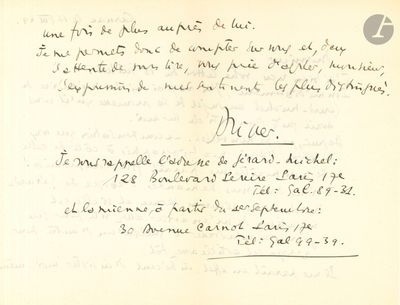 une fois de plus auprès de lui.
Je me permets donc de compter sur vous et, dans
l'attente de vous lire, vous prie d'agréer, monsieur,
l'expression de mes sentiments les plus distingués.
Je vous rappelle l'adresse de Gérard-Michel:
128 Boulevard Paris 17e
Tél: Gal. 89-32.
et la mienne, à partir du 1er septembre:
30 Avenue Carnot Paris 17e
Tél: Gal 99-39.
ad